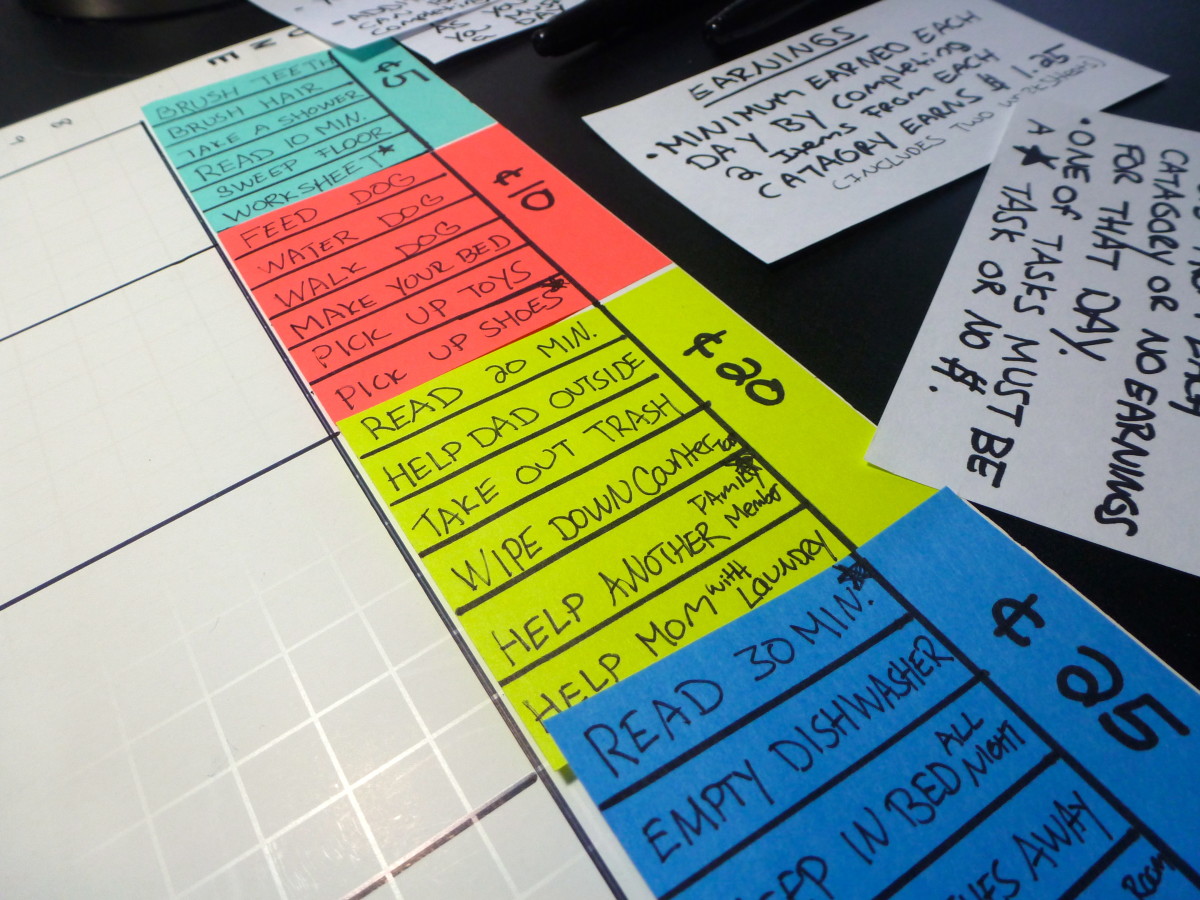 BRUSH TEETH
BRUSH HAIR
TAKE A SHOWER
READ 10 MIN.
SWEEP FLOOR
WORKSHEET★
¢5
FEED DOG
WATER DOG
WALK DOG
MAKE YOUR BED
PICK UP TOYS
PICK UP SHOES★
¢10
READ 20 MIN.
HELP DAD OUTSIDE
TAKE OUT TRASH
WIPE DOWN COUNTER
HELP ANOTHER FAMILY MEMBER
HELP MOM WITH LAUNDRY
¢20
READ 30 MIN.★
EMPTY DISHWASHER
IN BED ALL NIGHT
AWAY
ROOM
¢25
EARNINGS
• MINIMUM EARNED EACH
DAY BY COMPLETING
2 ITEMS FROM EACH
CATAGRY EARNS $1.25
(INCLUDES TWO
CATAGORY OR NO EARNINGS
FOR THAT DAY.
• ONE OF TASKS MUST BE
A ★ TASK OR NO $.
AS YOU
DAY
YOU